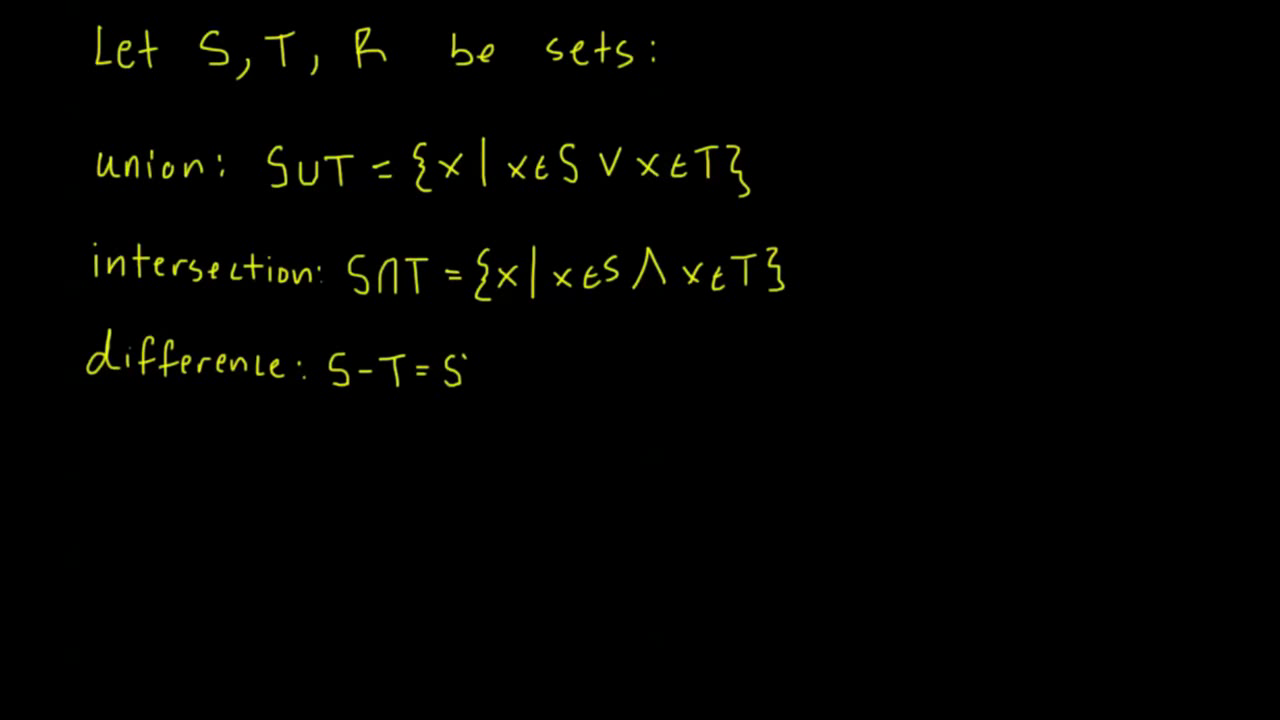 Let S, T, R be sets:
union: S∪T = {x | x∈S ∨ x∈T}
intersection: S∩T = {x | x∈S ∧ x∈T}
difference: S-T = S